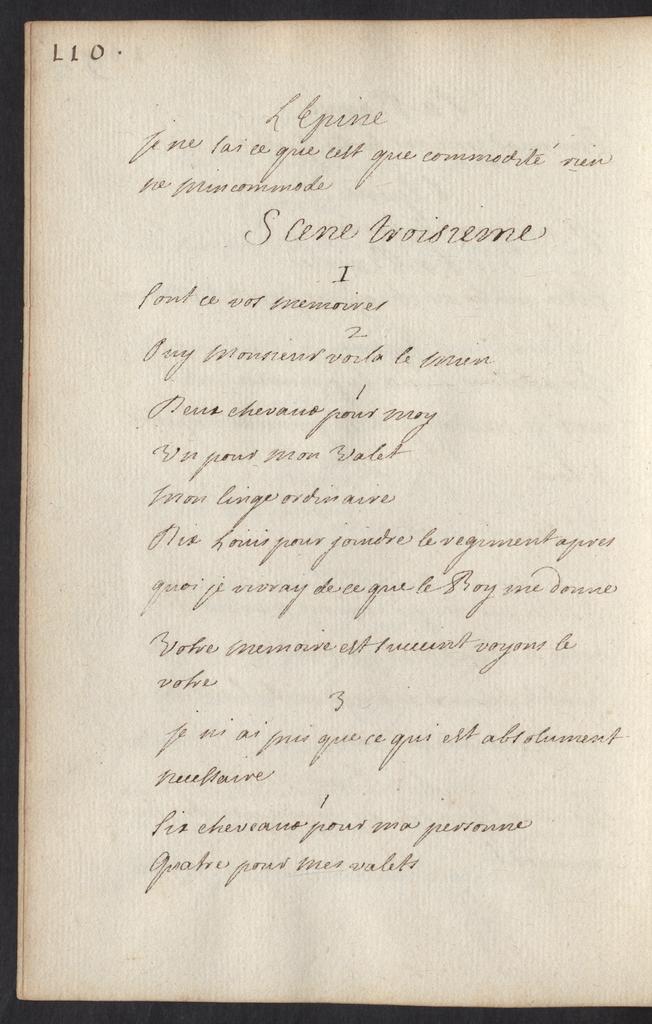 110.
L'Epine
je ne sai ce que cest que commodité rien
ne m'incommode
Scene troisieme
I
Sont ce vos memoires
2
Ouy monsieur voila le mien
1
Deux chevaux pour moy
Un pour mon valet
Mon linge ordinaire
Dix Louis pour joindre le regiment apres
quoi je vivray de ce que le Roy me donne
Votre memoire est succint voyons le
votre
3
je ni ai mis que ce qui est absolument
necessaire
1
Six cheveaux pour ma personne
Quatre pour mes valets